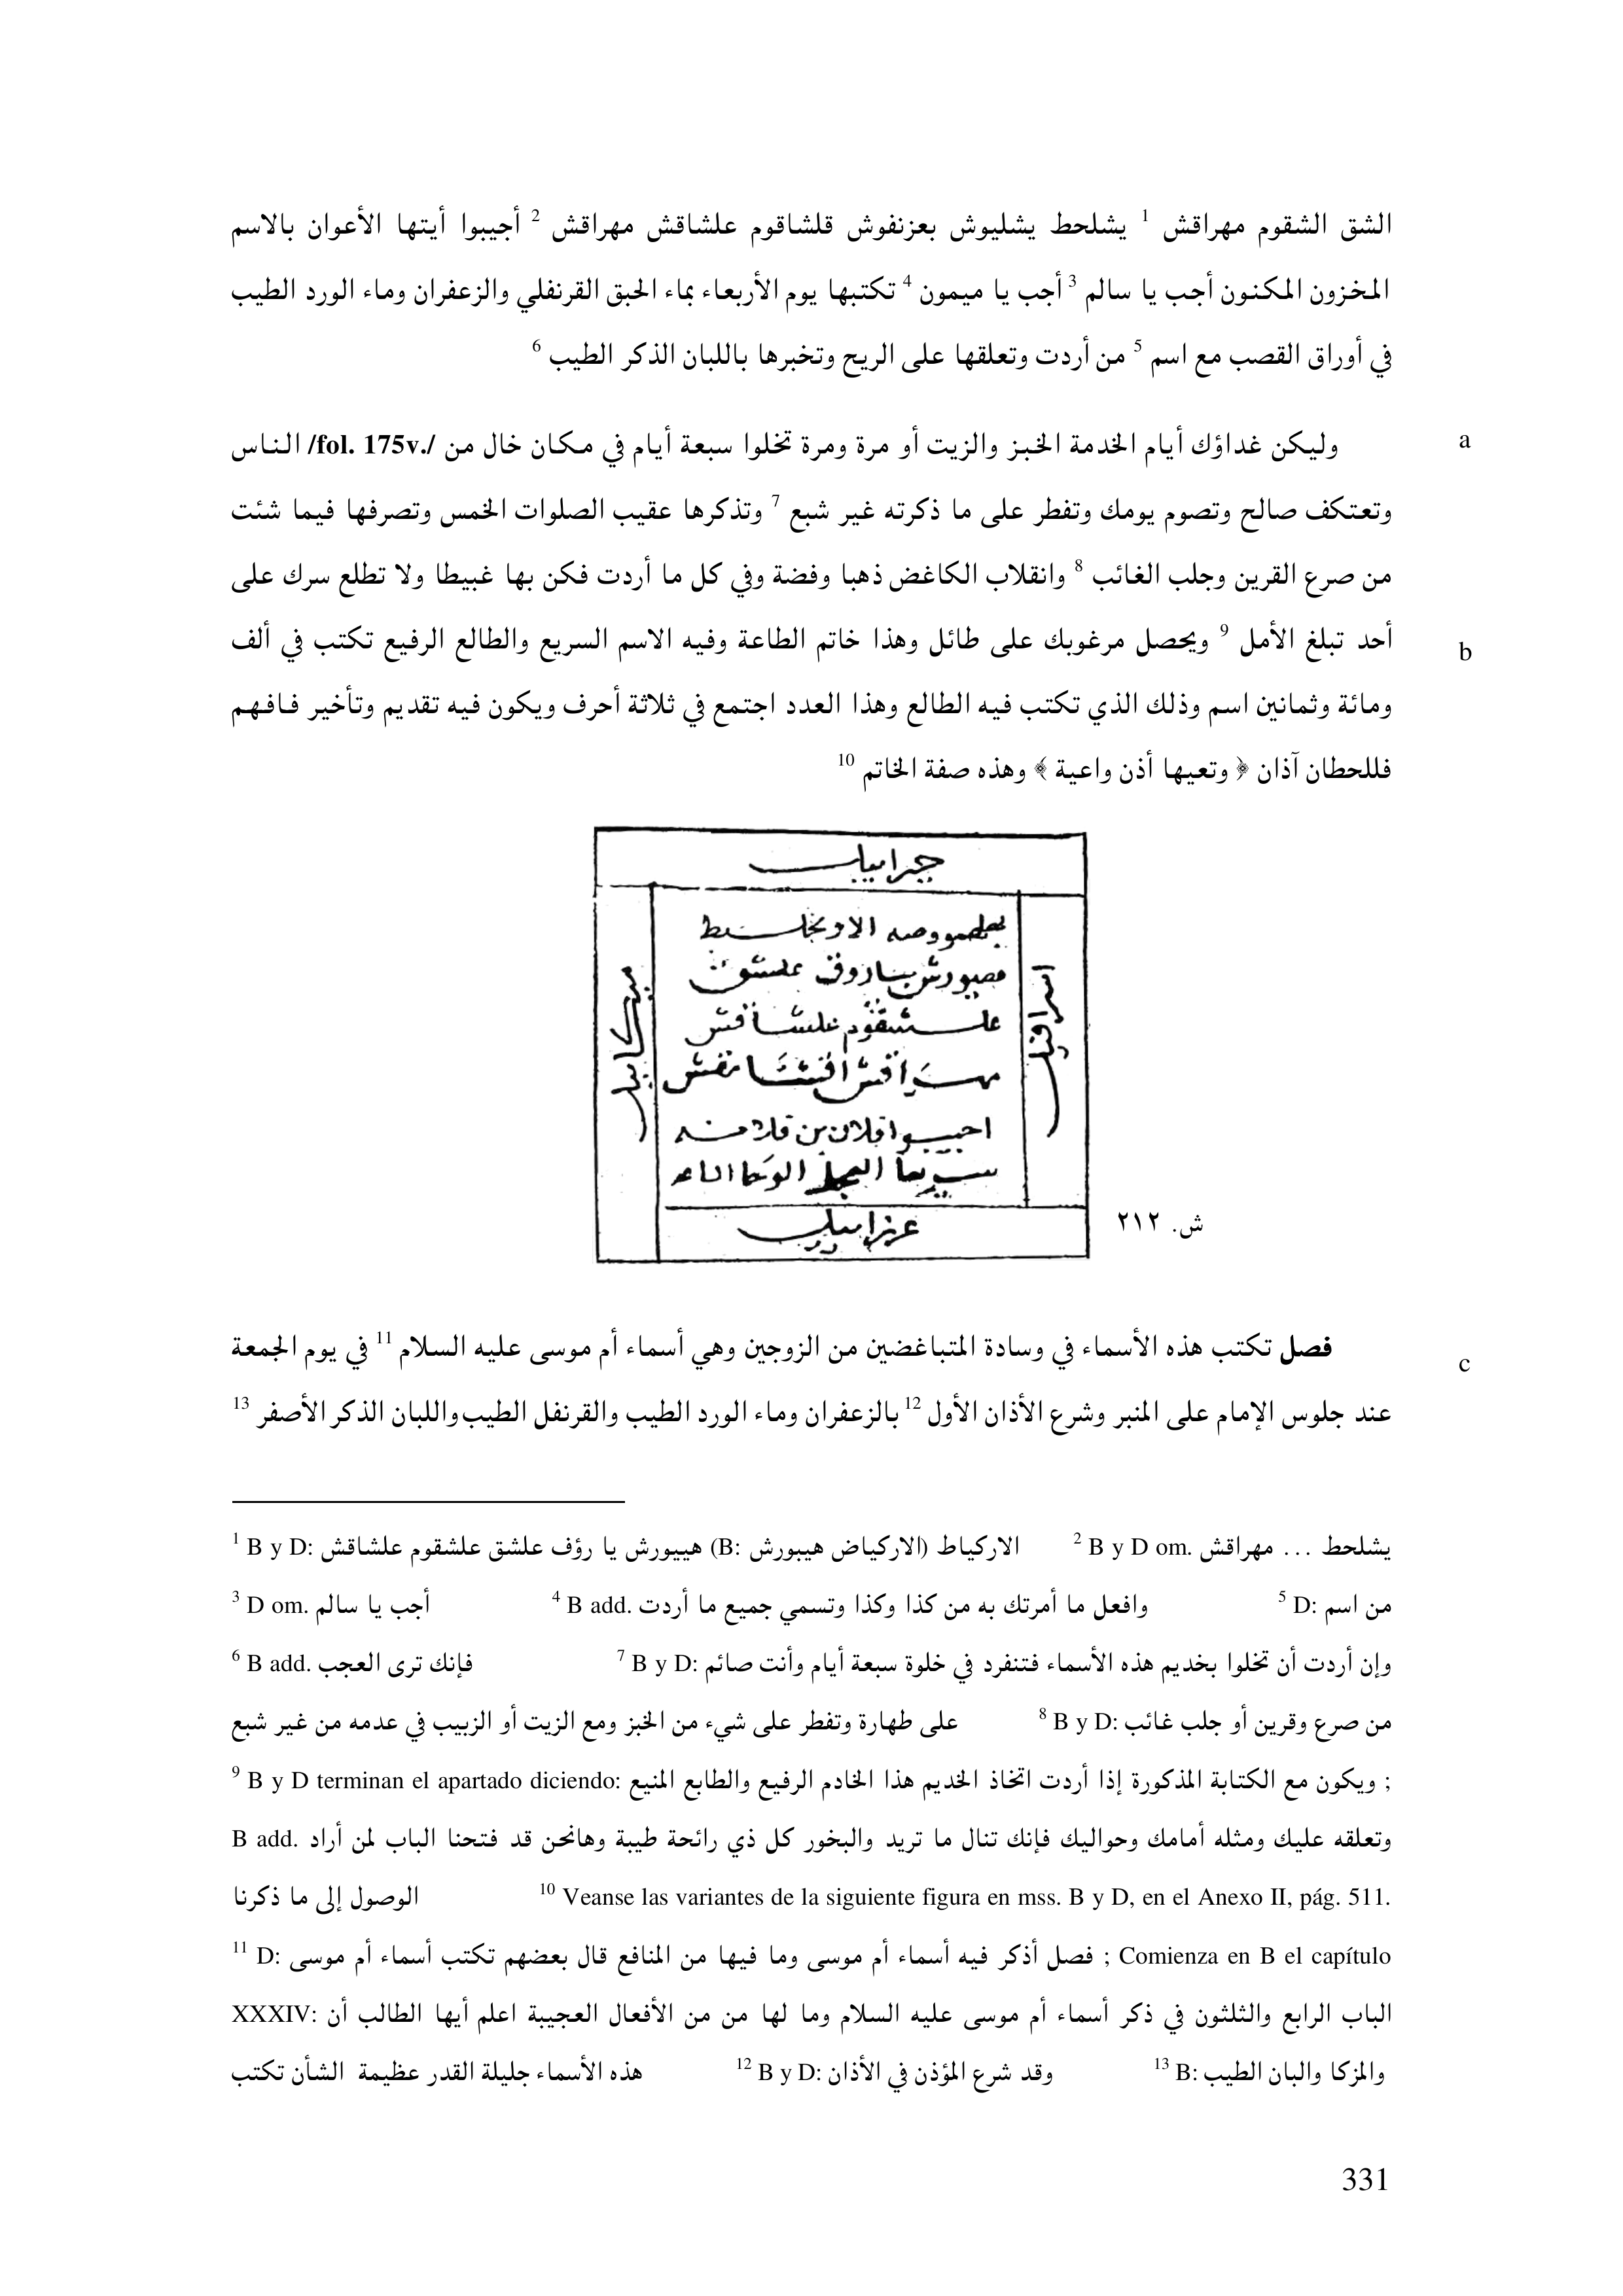 الشق الشقوم مهراقش 1 يشلحط يشليوش بعزنفوش قلشاقوم علشاقش مهراقش 2 أجيبوا أيتها الأعوان بالاسم
المخزون المكنون أجب يا سالم 3 أجب يا ميمون 4 تكتبها يوم الأربعاء بماء الحبق القرنفلي والزعفران وماء الورد الطيب
في أوراق القصب مع اسم 5 من أردت وتعلقها على الريح وتخبرها باللبان الذكر الطيب 6
a
وليكن غداؤك أيام الخدمة الخبز والزيت أو مرة ومرة تخلوا سبعة أيام في مكان خال من /fol. 175v./ الناس
وتعتكف صالح وتصوم يومك وتفطر على ما ذكرته غير شبع 7 وتذكرها عقيب الصلوات الخمس وتصرفها فيما شئت
من صرع القرين وجلب الغائب 8 وانقلاب الكاغض ذهبا وفضة وفي كل ما أردت فكن بها غبيطا ولا تطلع سرك على
أحد تبلغ الأمل 9 ويحصل مرغوبك على طائل وهذا خاتم الطاعة وفيه الاسم السريع والطالع الرفيع تكتب في ألف
b
ومائة وثمانين اسم وذلك الذي تكتب فيه الطالع وهذا العدد اجتمع في ثلاثة أحرف ويكون فيه تقديم وتأخير فافهم
فللحطان آذان ﴿ وتعيها أذن واعية ﴾ وهذه صفة الخاتم 10
جبراييل
اسرافيل
ميكاييل
عزراييل
ش. ٢١٢
فصل تكتب هذه الأسماء في وسادة المتباغضين من الزوجين وهي أسماء أم موسى عليه السلام 11 في يوم الجمعة
c
عند جلوس الإمام على المنبر وشرع الأذان الأول 12 بالزعفران وماء الورد الطيب والقرنفل الطيب واللبان الذكر الأصفر 13
1 B y D: الاركياط (الاركياض هيبورش :B) هييورش يا رؤف علشق علشقوم علشاقش 2 B y D om. يشلحط ... مهراقش
3 D om. أجب يا سالم 4 B add. وافعل ما أمرتك به من كذا وكذا وتسمي جميع ما أردت 5 D: من اسم
6 B add. فإنك ترى العجب 7 B y D: وإن أردت أن تخلوا بخديم هذه الأسماء فتنفرد في خلوة سبعة أيام وأنت صائم
على طهارة وتفطر على شيء من الخبز ومع الزيت أو الزبيب في عدمه من غير شبع 8 B y D: من صرع وقرين أو جلب غائب
9 B y D terminan el apartado diciendo: ويكون مع الكتابة المذكورة إذا أردت اتخاذ الخديم هذا الخادم الرفيع والطابع المنيع ;
B add. وتعلقه عليك ومثله أمامك وحواليك فإنك تنال ما تريد والبخور كل ذي رائحة طيبة وهانحن قد فتحنا الباب لمن أراد
الوصول إلى ما ذكرنا 10 Veanse las variantes de la siguiente figura en mss. B y D, en el Anexo II, pág. 511.
11 D: فصل أذكر فيه أسماء أم موسى وما فيها من المنافع قال بعضهم تكتب أسماء أم موسى ; Comienza en B el capítulo
XXXIV: الباب الرابع والثلثون في ذكر أسماء أم موسى عليه السلام وما لها من من الأفعال العجيبة اعلم أيها الطالب أن
هذه الأسماء جليلة القدر عظيمة الشأن تكتب 12 B y D: وقد شرع المؤذن في الأذان 13 B: والمزكا والبان الطيب
331